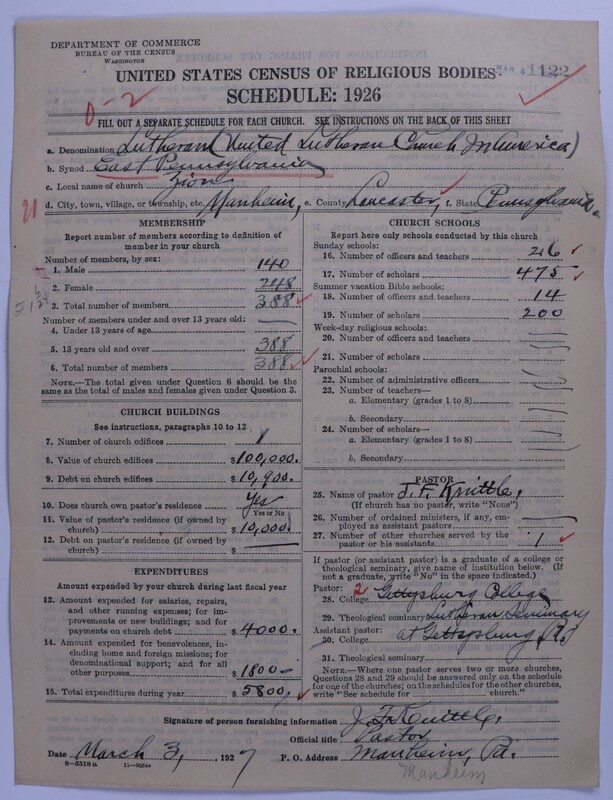 DEPARTMENT OF COMMERCE
BUREAU OF THE CENSUS
WASHINGTON
MAR 4 1122
UNITED STATES CENSUS OF RELIGIOUS BODIES
SCHEDULE: 1926
0-2
FILL OUT A SEPARATE SCHEDULE FOR EACH CHURCH. SEE INSTRUCTIONS ON THE BACK OF THIS SHEET
a. Denomination Lutheran (United Lutheran Church In America)
b. Synod East Pennsylvania
c. Local name of church Zion
d. City, town, village, or township, etc. Manheim, e. County Lancaster, f. State Pennsylvania.
MEMBERSHIP
Report number of members according to definition of member in your church
Number of members, by sex:
1. Male 140
2. Female 248
3. Total number of members 388
Number of members under and over 13 years old:
4. Under 13 years of age —
5. 13 years old and over 388
6. Total number of members 388
NOTE.—The total given under Question 6 should be the same as the total of males and females given under Question 3.
CHURCH BUILDINGS
See instructions, paragraphs 10 to 12
7. Number of church edifices 1
8. Value of church edifices $100,000.
9. Debt on church edifices $10,900.
10. Does church own pastor's residence Yes
Yes or No
11. Value of pastor's residence (if owned by church) $10,000.
12. Debt on pastor's residence (if owned by church) $ —
EXPENDITURES
Amount expended by your church during last fiscal year
13. Amount expended for salaries, repairs, and other running expenses; for improvements or new buildings; and for payments on church debt $4000.
14. Amount expended for benevolences, including home and foreign missions; for denominational support; and for all other purposes $1800—
15. Total expenditures during year $5800.
CHURCH SCHOOLS
Report here only schools conducted by this church
Sunday schools:
16. Number of officers and teachers 26
17. Number of scholars 475
Summer vacation Bible schools:
18. Number of officers and teachers 14
19. Number of scholars 200
Week-day religious schools:
20. Number of officers and teachers
21. Number of scholars
Parochial schools:
22. Number of administrative officers
23. Number of teachers—
a. Elementary (grades 1 to 8)
b. Secondary
24. Number of scholars—
a. Elementary (grades 1 to 8)
b. Secondary
PASTOR
25. Name of pastor J. F. Knittle,
(If church has no pastor, write "None")
26. Number of ordained ministers, if any, employed as assistant pastors
27. Number of other churches served by the pastor or his assistants 1
If pastor (or assistant pastor) is a graduate of a college or theological seminary, give name of institution below. (If not a graduate, write "No" in the space indicated.)
Pastor: 2
28. College Gettysburg College
29. Theological seminary Lutheran Seminary
Assistant pastor: at Gettysburg, Pa.
30. College
31. Theological seminary
NOTE.—Where one pastor serves two or more churches, Questions 28 and 29 should be answered only on the schedule for one of the churches; on the schedules for the other churches, write "See schedule for church."
Signature of person furnishing information J. F. Knittle,
Official title Pastor
Date March 3, 1927 P. O. Address Manheim, Pa.
8-5318a 11-9554a
Manheim